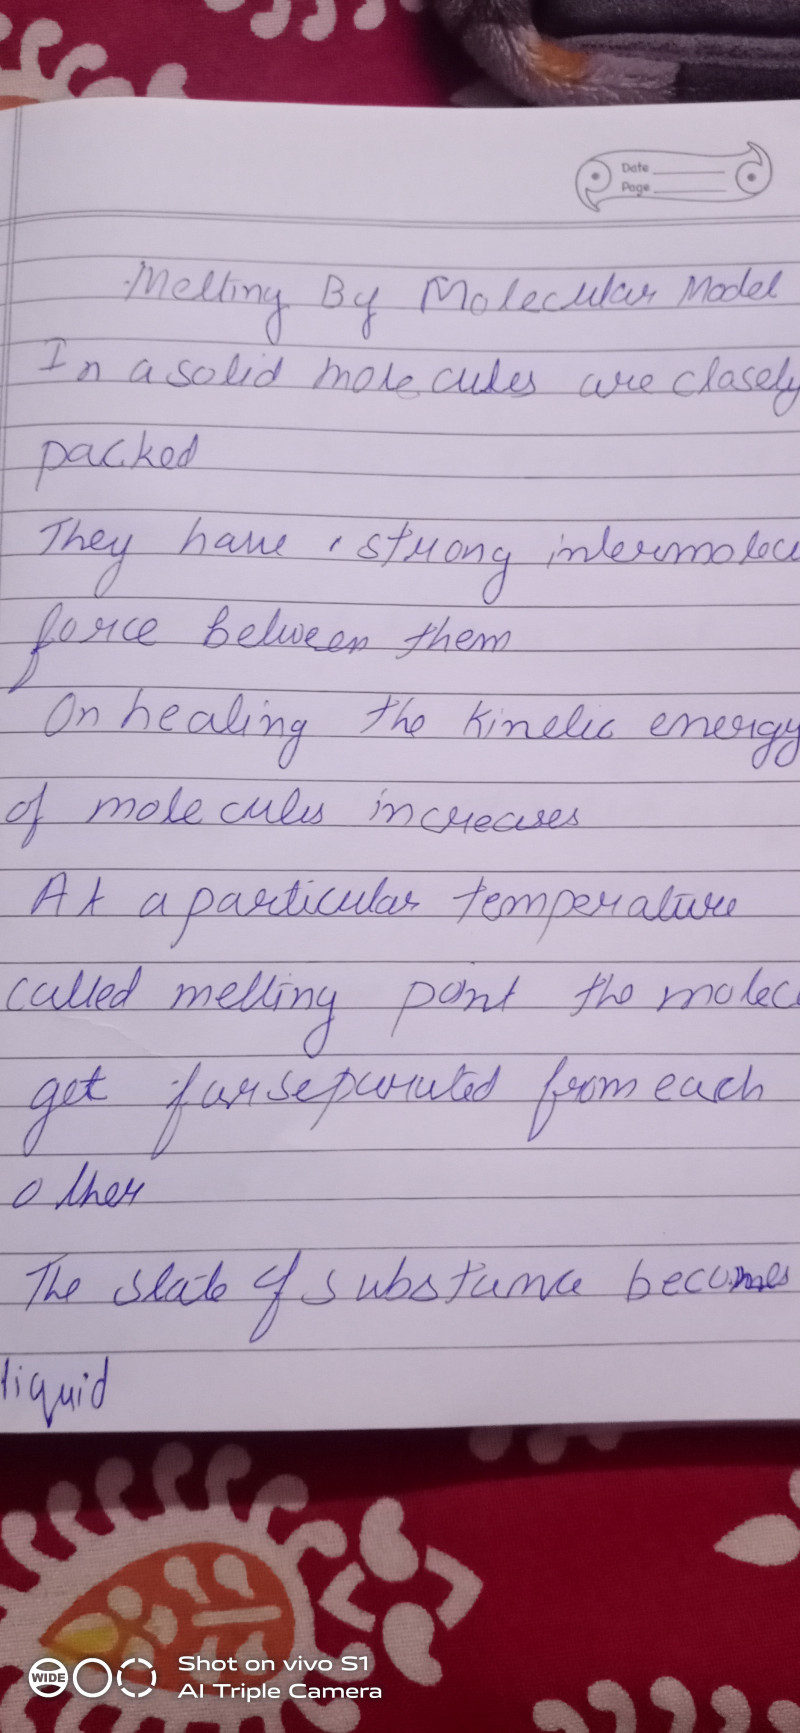 Date
Page
Melting By Molecular Model
In a solid molecules are closely
packed
They have strong intermolecu
force between them
On heating the kinetic energy
of molecules increases
At a particular temperature
called melting point the molec
get far separated from each
other
The state of substance becomes
liquid
WIDE
Shot on vivo S1
AI Triple Camera